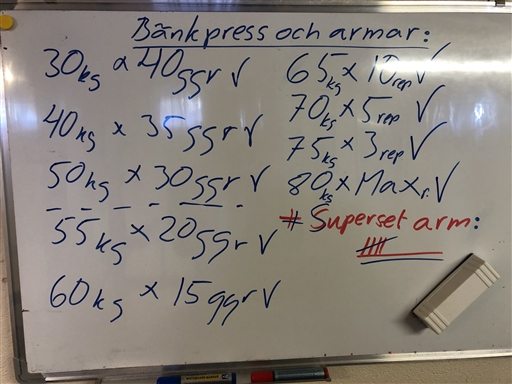 Bänkpress och armar:
30kg x 40ggr √
40kg x 35ggr √
50kg x 30ggr √
55kg x 20ggr √
60kg x 15ggr √
65kg x 10rep √
70kg x 5rep √
75kg x 3rep √
80kg x Max r. √
# Superset arm: